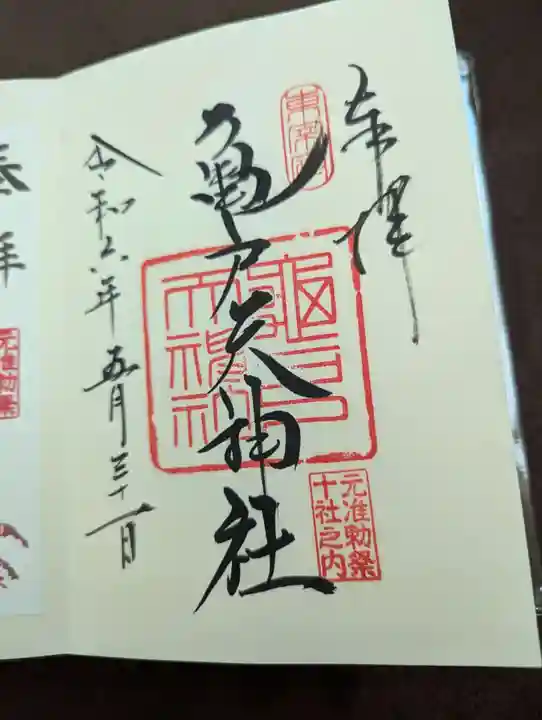 奉拝
東宰府
亀戸天神社
亀戸天神社
元准勅祭
十社之内
令和六年五月三十一日
拝
元准勅祭